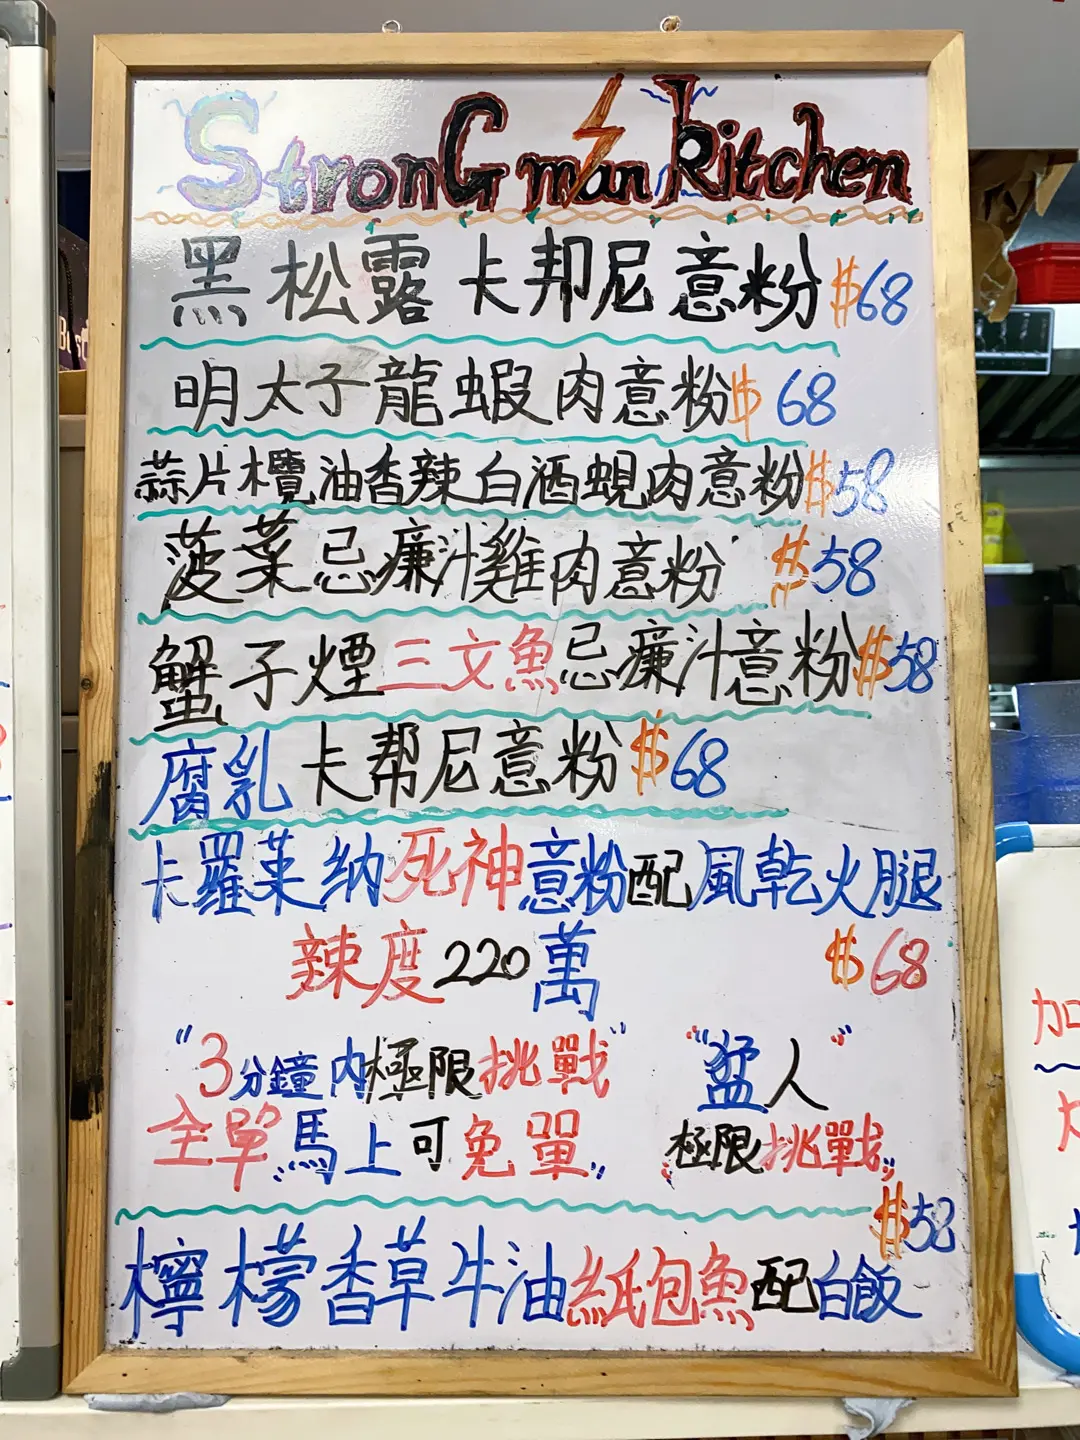 StronG man kitchen
黑松露卡邦尼意粉 $68
明太子龍蝦肉意粉 $68
蒜片欖油香辣白酒蜆肉意粉 $58
菠菜忌廉汁雞肉意粉 $58
蟹子煙三文魚忌廉汁意粉 $58
腐乳卡帮尼意粉 $68
卡羅莱纳死神意粉配風乾火腿
辣度220萬 $68
"3分鐘內極限挑戰" "猛人"
全單"馬上可免單" "極限挑戰"
$58
檸檬香草牛油紙包魚配白飯
加